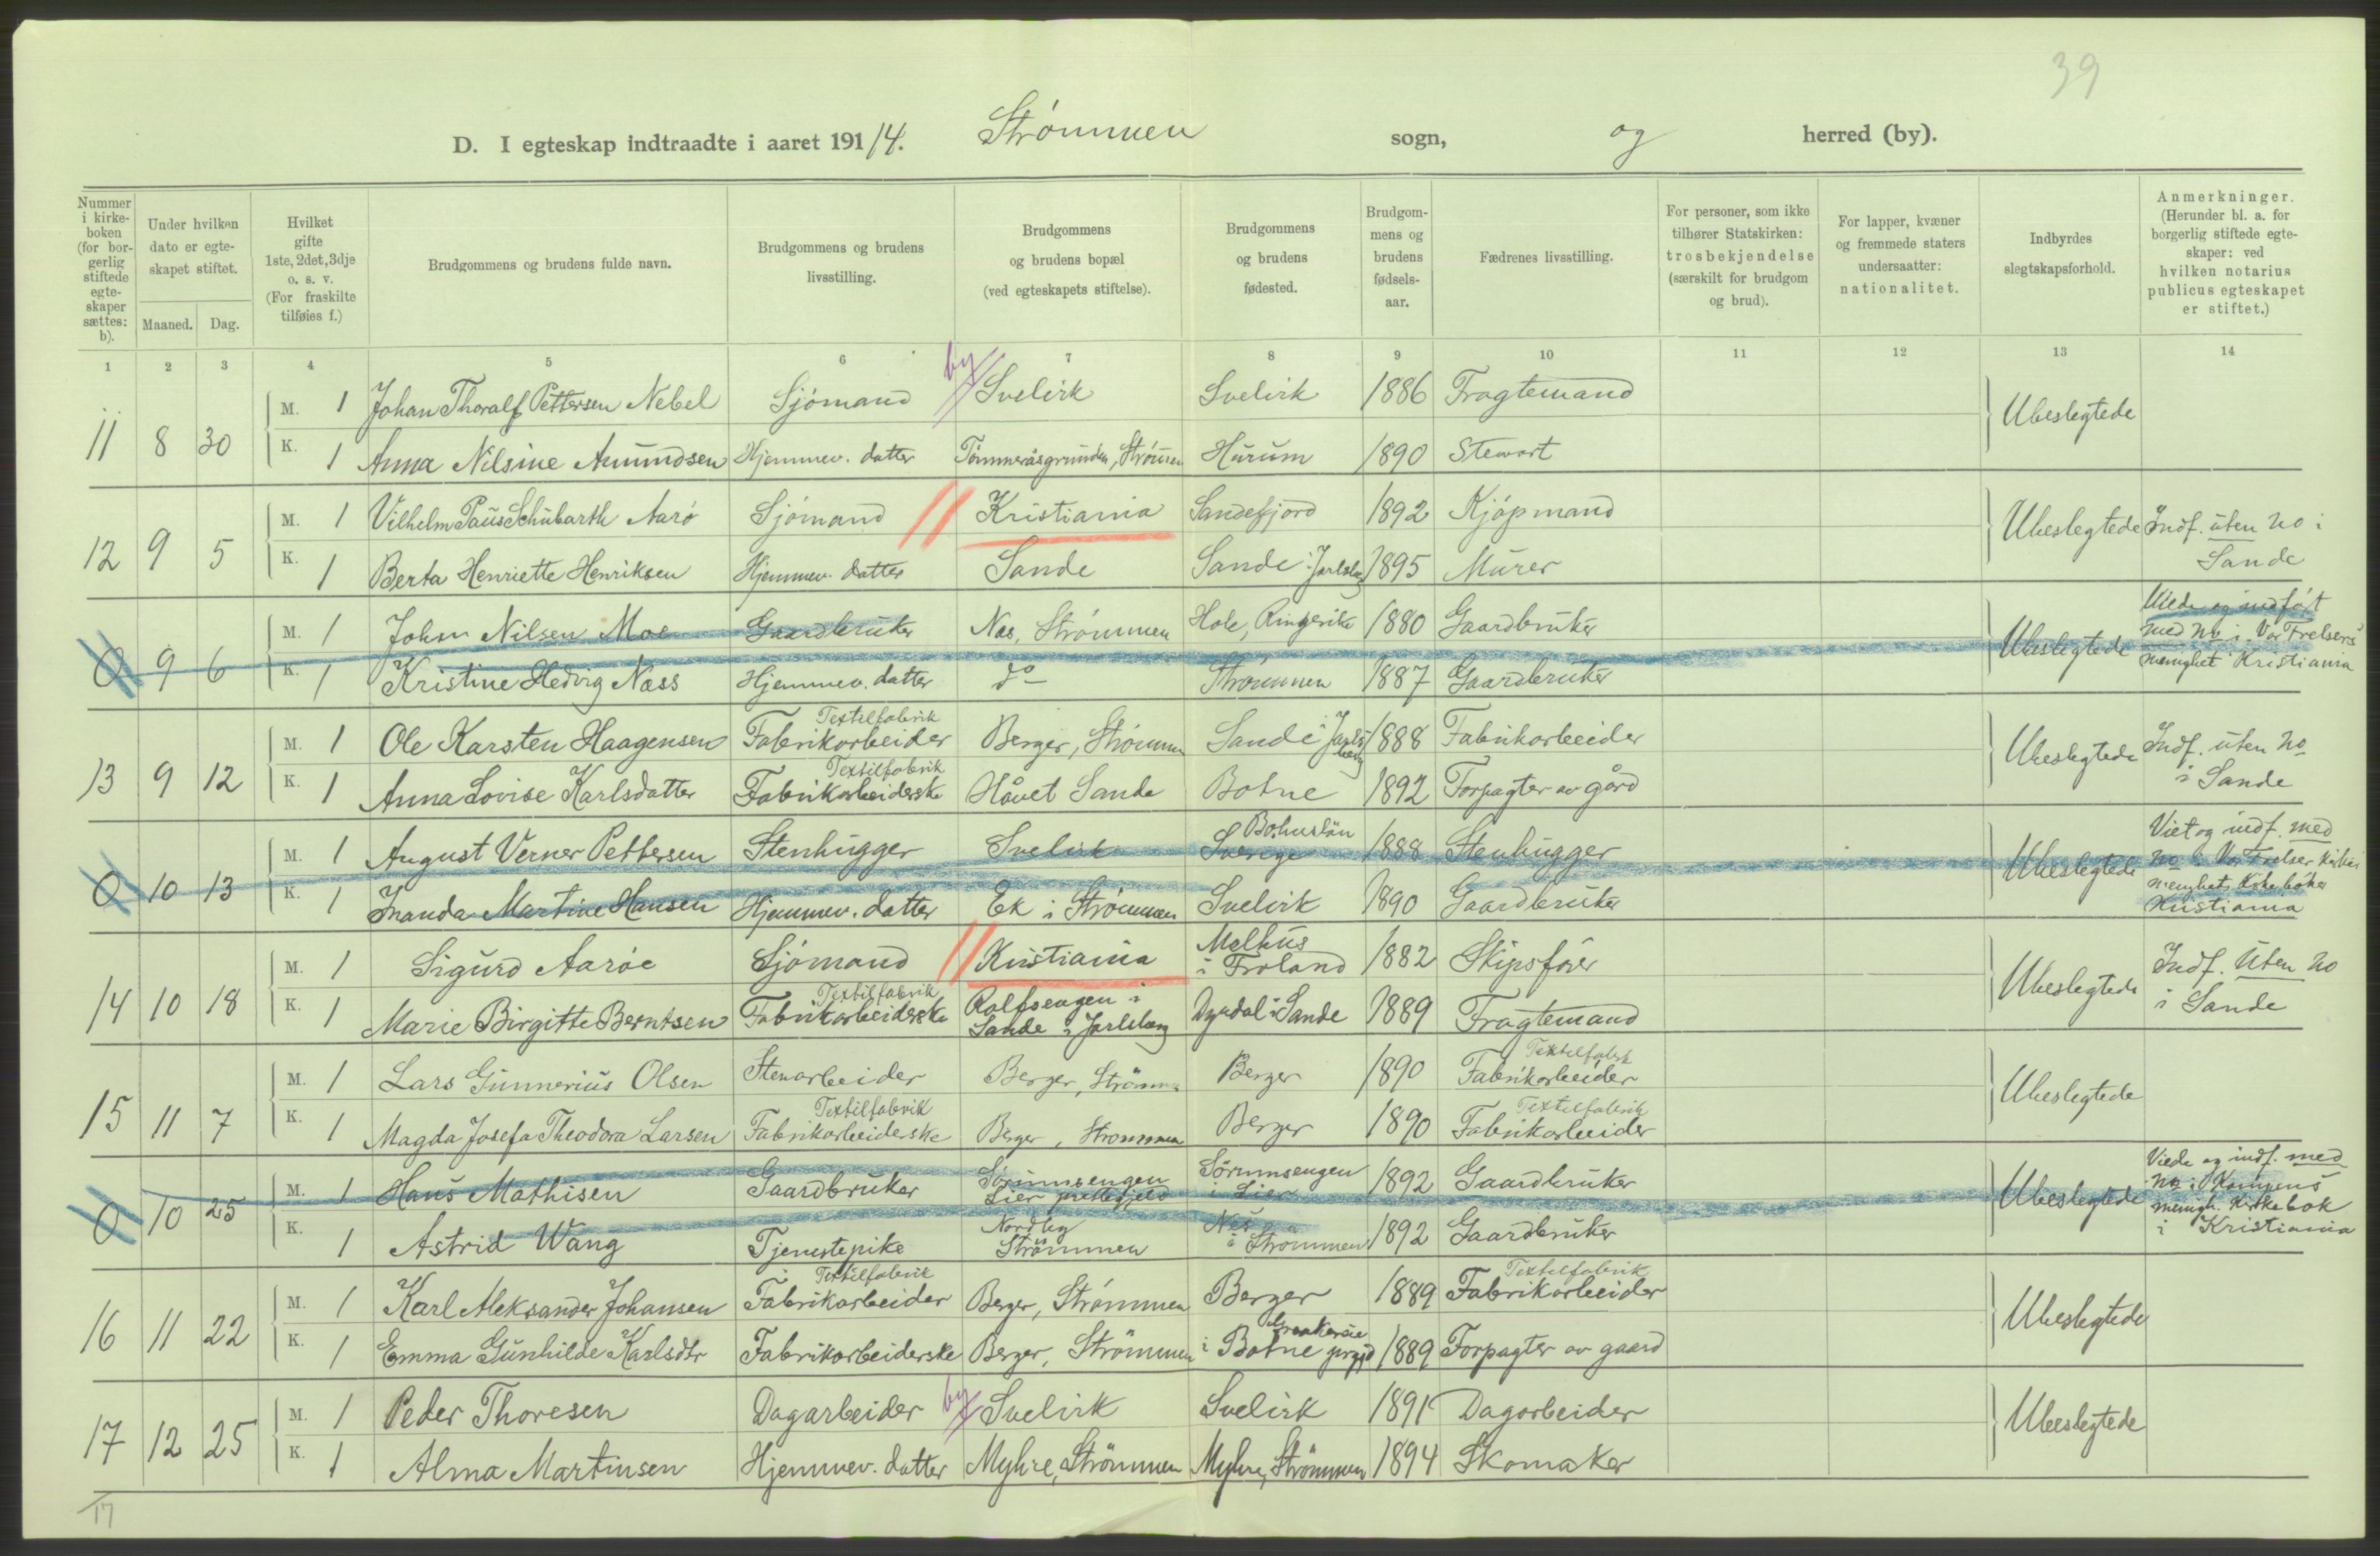 39
D. I egteskap indtraadte i aaret 1914. Strømmen sogn, og herred (by).
Nummer i kirke-boken (for bor-gerlig stiftede egte-skaper sættes: b).
Under hvilken dato er egte-skapet stiftet.
Maaned. Dag.
Hvilket gifte 1ste, 2det, 3dje o. s. v. (For fraskilte tilføies f.)
Brudgommens og brudens fulde navn.
Brudgommens og brudens livsstilling.
Brudgommens og brudens bopæl (ved egteskapets stiftelse).
Brudgommens og brudens fødested.
Brudgom-mens og brudens fødsels-aar.
Fædrenes livsstilling.
For personer, som ikke tilhører Statskirken: trosbekjendelse (særskilt for brudgom og brud).
For lapper, kvæner og fremmede staters undersaatter: nationalitet.
Indbyrdes slegtskapsforhold.
Anmerkninger. (Herunder bl. a. for borgerlig stiftede egte-skaper: ved hvilken notarius publicus egteskapet er stiftet.)
1 2 3 4 5 6 7 8 9 10 11 12 13 14
11 8 30 M. 1 Johan Thoralf Pettersen Nebel Sjömand by Svelvik Svelvik 1886 Fragtemand Ubeslegtede
K. 1 Anna Nilsine Amundsen Hjemmev. datter Tömmeråsgrunden, Strömmen Hurum 1890 Stewart
12 9 5 M. 1 Vilhelm Paus Schubarth Aarö Sjömand Kristiania Sandefjord 1892 Kjöpmand Ubeslegtede Indf. uten no i Sande
K. 1 Berta Henriette Henriksen Hjemmev. datter Sande Sande i Jarlsberg 1895 Murer
0 9 6 M. 1 Johan Nilsen Moe Gaardbruker Nes, Strömmen Hole, Ringerike 1880 Gaardbruker Ubeslegtede Viede og indfört med no i Vor Frelsers menighet i Kristiania
K. 1 Kristine Hedvig Næss Hjemmev. datter do Strömmen 1887 Gaardbruker
13 9 12 M. 1 Ole Karsten Haagensen Textilfabrik Fabrikarbeider Berger, Strömmen Sande i Jarlsberg 1888 Fabrikarbeider Ubeslegtede Indf. uten no i Sande
K. 1 Anna Lovise Karlsdatter Textilfabrik Fabrikarbeiderske Håvet Sande Botne 1892 Forpagter av gård
0 10 13 M. 1 August Verner Pettersen Stenhugger Svelvik Bohuslän Sverige 1888 Stenhugger Ubeslegtede Viet og indf. med no i Vor Frelser Kirkes menighets Kirkebøker Kristiania
K. 1 Inanda Martine Hansen Hjemmev. datter Ek i Strömmen Svelvik 1890 Gaardbruker
14 10 18 M. 1 Sigurd Aaröe Sjömand Kristiania Melhus i Froland 1882 Skipsförer Ubeslegtede Indf. uten no i Sande
K. 1 Marie Birgitte Berntsen Textilfabrik Fabrikarbeiderske Rolfsengen i Sande i Jarlsberg Dyrdal i Sande 1889 Fragtemand
15 11 7 M. 1 Lars Gunnerius Olsen Stenarbeider Berger, Strömmen Berger 1890 Textilfabrik Fabrikarbeider Ubeslegtede
K. 1 Magda Josefa Theodora Larsen Textilfabrik Fabrikarbeiderske Berger, Strömmen Berger 1890 Textilfabrik Fabrikarbeider
0 10 25 M. 1 Hans Mathisen Gaardbruker Sörumsengen Lier prestegjeld Sörumsengen i Lier 1892 Gaardbruker Ubeslegtede Viede og indf. med no i Kampens menigh. Kirkebok i Kristiania
K. 1 Astrid Wang Tjenestepike Nordby Strömmen Nes i Strömmen 1892 Gaardbruker
16 11 22 M. 1 Karl Aleksander Johansen Textilfabrik Fabrikarbeider Berger, Strömmen Berger 1889 Textilfabrik Fabrikarbeider Ubeslegtede
K. 1 Emma Gunhilde Karlsdtr Fabrikarbeiderske Berger, Strömmen i Botne 1889 Forpagter av gaard
17 12 25 M. 1 Peder Thoresen Dagarbeider by Svelvik Svelvik 1891 Dagarbeider Ubeslegtede
K. 1 Alma Martinsen Hjemmev. datter Myhre, Strömmen Myhre, Strömmen 1894 Skomaker
17